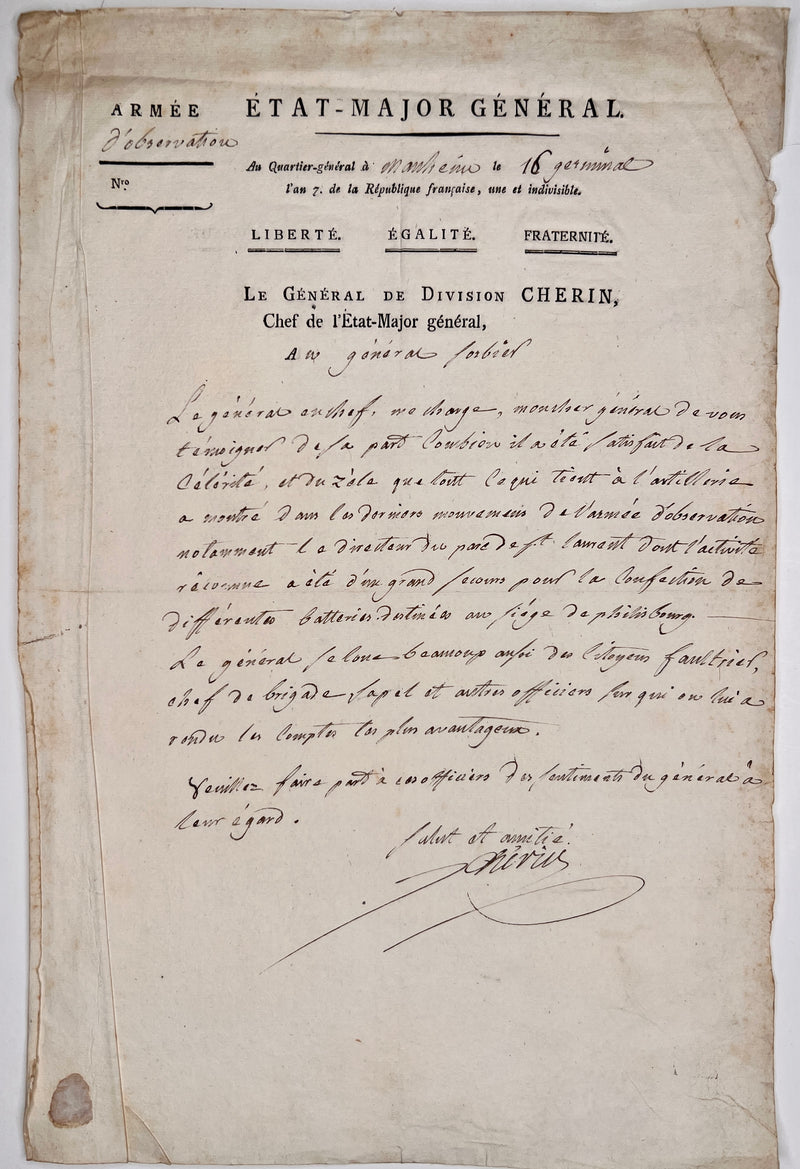 ARMÉE
d'observation
Nro
ÉTAT-MAJOR GÉNÉRAL.
Au Quartier-général à Manheim le 16 germinal
l'an 7. de la République française, une et indivisible.
LIBERTÉ. ÉGALITÉ. FRATERNITÉ.
LE GÉNÉRAL DE DIVISION CHERIN,
Chef de l'État-Major général,
Au général Sorbier
Le général en chef, me charge, mon cher général de vous
témoigner de sa part combien il a été satisfait de la
célérité, et du zèle que tout ce qui tient à l'artillerie
a montré dans les derniers mouvemens de l'armée d'observation
notamment le directeur du parc de st. laurent dont l'activité
reconnue a été d'un grand secours pour la confection de
différentes batteries destinées au siége de philisbourg.
Le général se loue beaucoup aussi des citoyens faultrier,
chef de brigade, sapel et autres officiers sur qui on lui a
rendu les comptes les plus avantageux.
Veuillez faire part à ces officiers des sentiments du général à
leur égard.
salut et amitié.
Chérin